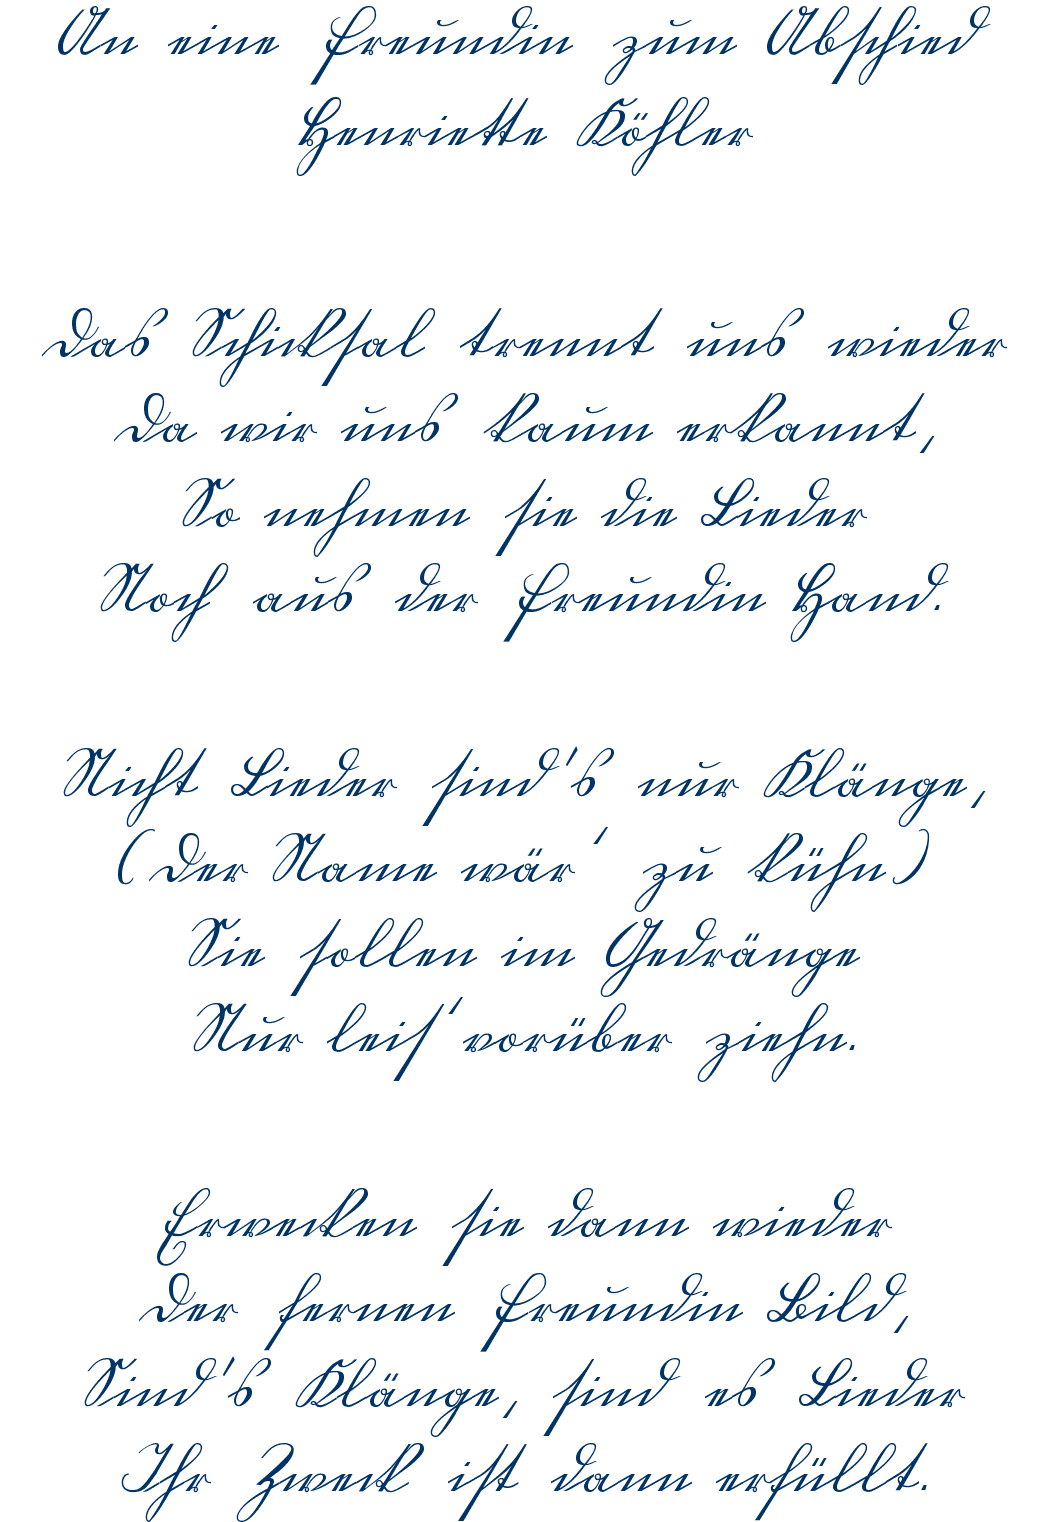 An eine Freundin zum Abschied
Henriette Köhler
Das Schicksal trennt uns wieder
Da wir uns kaum erkannt,
So nehmen sie die Lieder
Noch aus der Freundin Hand.
Nicht Lieder sind's nur Klänge,
(Der Name wär' zu kühn)
Sie sollen im Gedränge
Nur leis' vorüber ziehn.
Erwecken sie dann wieder
Der fernen Freundin Bild,
Sind's Klänge, sind es Lieder
Ihr Zweck ist dann erfüllt.